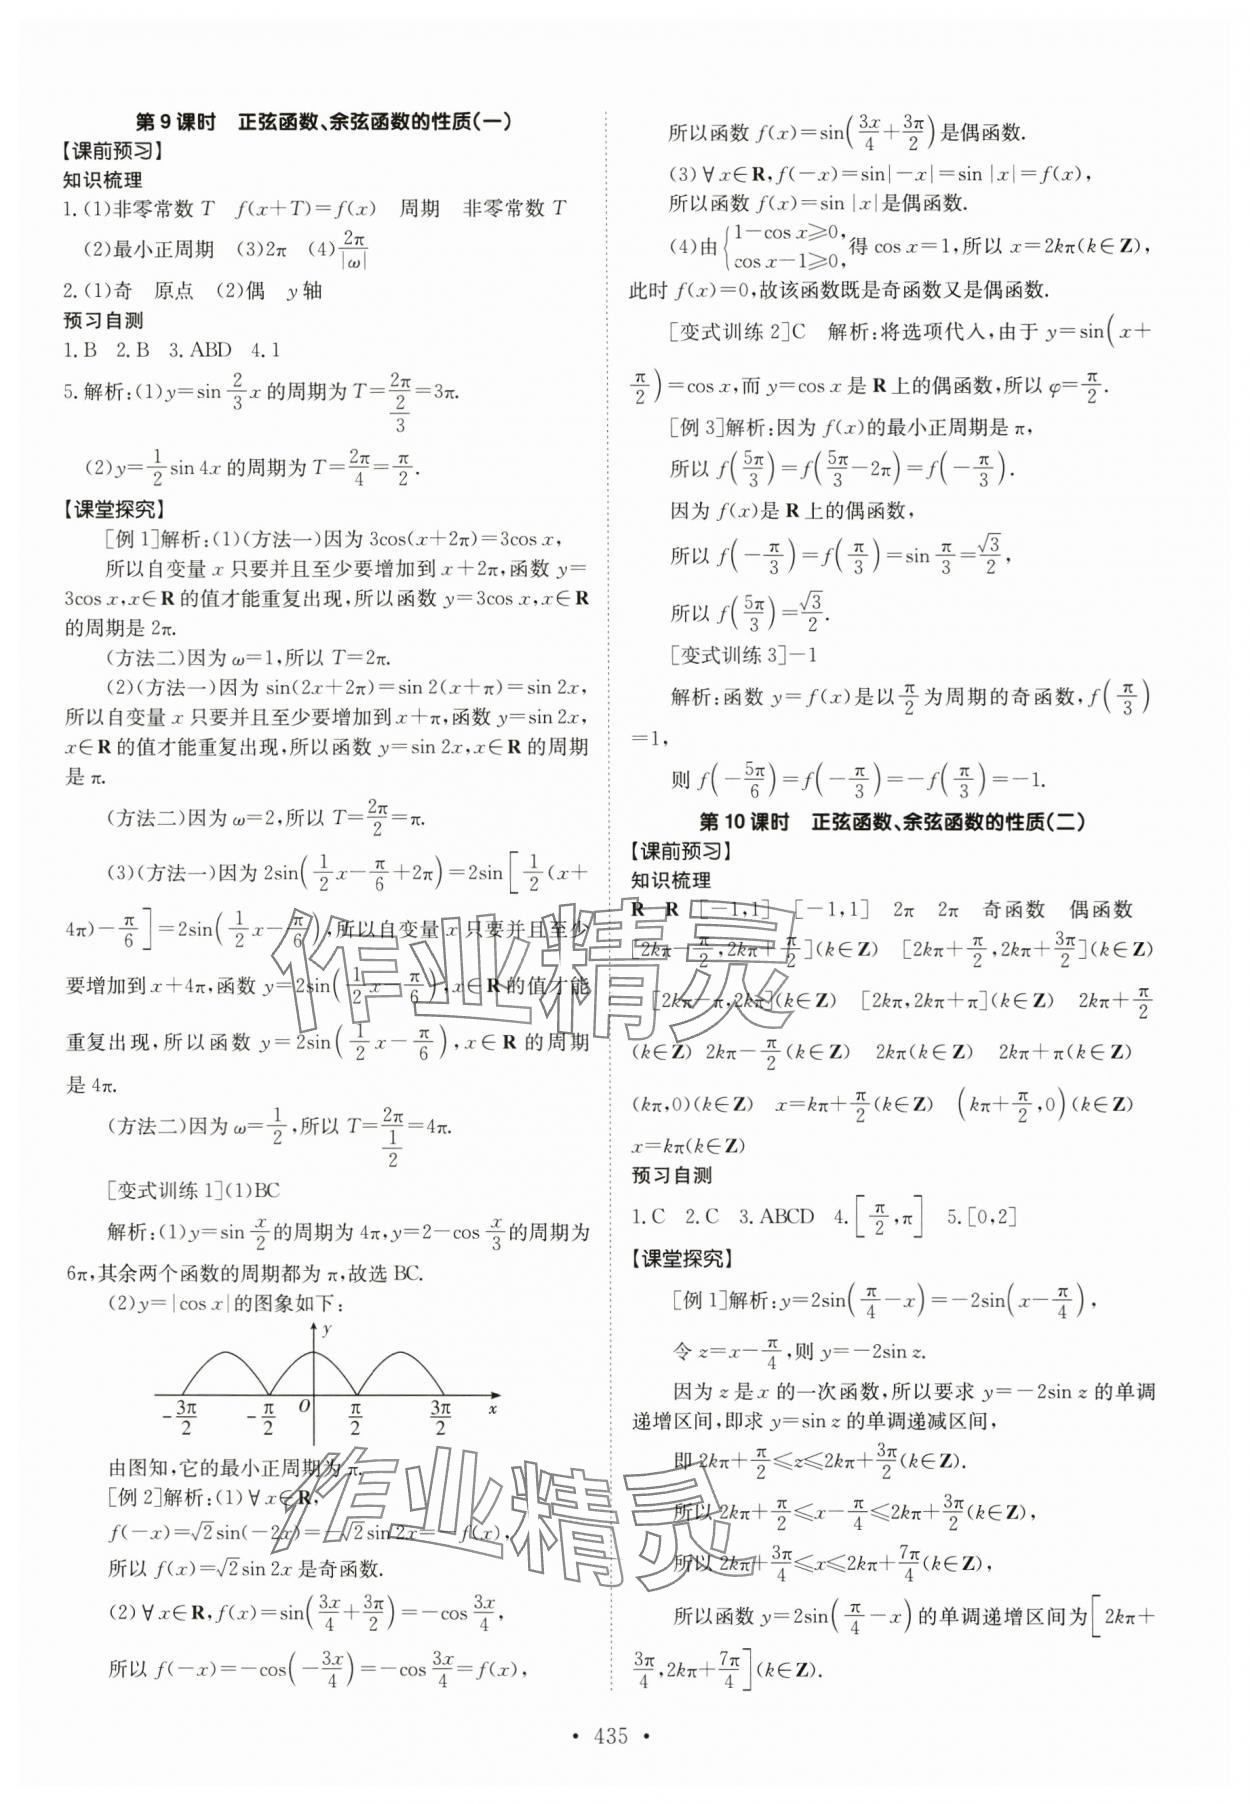 第9课时　正弦函数、余弦函数的性质(一)
【课前预习】
知识梳理
1.(1)非零常数 T　f(x+T)=f(x)　周期　非零常数 T
(2)最小正周期　(3)2π　(4)2π/|ω|
2.(1)奇　原点　(2)偶　y 轴
预习自测
1.B　2.B　3.ABD　4.1
5.解析:(1)y=sin 2/3 x 的周期为 T=2π/(2/3)=3π.
(2)y=1/2 sin 4x 的周期为 T=2π/4=π/2.
【课堂探究】
[例1]解析:(1)(方法一)因为 3cos(x+2π)=3cos x,
所以自变量 x 只要并且至少要增加到 x+2π,函数 y=
3cos x,x∈R 的值才能重复出现,所以函数 y=3cos x,x∈R
的周期是 2π.
(方法二)因为 ω=1,所以 T=2π.
(2)(方法一)因为 sin(2x+2π)=sin 2(x+π)=sin 2x,
所以自变量 x 只要并且至少要增加到 x+π,函数 y=sin 2x,
x∈R 的值才能重复出现,所以函数 y=sin 2x,x∈R 的周期
是 π.
(方法二)因为 ω=2,所以 T=2π/2=π.
(3)(方法一)因为 2sin(1/2 x-π/6+2π)=2sin[1/2(x+
4π)-π/6]=2sin(1/2 x-π/6),所以自变量 x 只要并且至少
要增加到 x+4π,函数 y=2sin(1/2 x-π/6),x∈R 的值才能
重复出现,所以函数 y=2sin(1/2 x-π/6),x∈R 的周期
是 4π.
(方法二)因为 ω=1/2,所以 T=2π/(1/2)=4π.
[变式训练1](1)BC
解析:(1)y=sin x/2 的周期为 4π,y=2-cos x/3 的周期为
6π,其余两个函数的周期都为 π,故选 BC.
(2)y=|cos x|的图象如下:
y
-3π/2　-π/2　O　π/2　3π/2　x
由图知,它的最小正周期为 π.
[例2]解析:(1)∀x∈R,
f(-x)=√2sin(-2x)=-√2sin 2x=-f(x),
所以 f(x)=√2sin 2x 是奇函数.
(2)∀x∈R,f(x)=sin(3x/4+3π/2)=-cos 3x/4,
所以 f(-x)=-cos(-3x/4)=-cos 3x/4=f(x),
所以函数 f(x)=sin(3x/4+3π/2)是偶函数.
(3)∀x∈R,f(-x)=sin|-x|=sin |x|=f(x),
所以函数 f(x)=sin |x|是偶函数.
(4)由{1-cos x≥0, cos x-1≥0,得 cos x=1,所以 x=2kπ(k∈Z),
此时 f(x)=0,故该函数既是奇函数又是偶函数.
[变式训练2]C　解析:将选项代入,由于 y=sin(x+
π/2)=cos x,而 y=cos x 是 R 上的偶函数,所以 φ=π/2.
[例3]解析:因为 f(x)的最小正周期是 π,
所以 f(5π/3)=f(5π/3-2π)=f(-π/3).
因为 f(x)是 R 上的偶函数,
所以 f(-π/3)=f(π/3)=sin π/3=√3/2,
所以 f(5π/3)=√3/2.
[变式训练3]-1
解析:函数 y=f(x)是以 π/2 为周期的奇函数,f(π/3)
=1,
则 f(-5π/6)=f(-π/3)=-f(π/3)=-1.
第10课时　正弦函数、余弦函数的性质(二)
【课前预习】
知识梳理
R　R　[-1,1]　[-1,1]　2π　2π　奇函数　偶函数
[2kπ-π/2,2kπ+π/2](k∈Z)　[2kπ+π/2,2kπ+3π/2](k∈Z)
[2kπ-π,2kπ](k∈Z)　[2kπ,2kπ+π](k∈Z)　2kπ+π/2
(k∈Z)　2kπ-π/2(k∈Z)　2kπ(k∈Z)　2kπ+π(k∈Z)
(kπ,0)(k∈Z)　x=kπ+π/2(k∈Z)　(kπ+π/2,0)(k∈Z)
x=kπ(k∈Z)
预习自测
1.C　2.C　3.ABCD　4.[π/2,π]　5.[0,2]
【课堂探究】
[例1]解析:y=2sin(π/4-x)=-2sin(x-π/4),
令 z=x-π/4,则 y=-2sin z.
因为 z 是 x 的一次函数,所以要求 y=-2sin z 的单调
递增区间,即求 y=sin z 的单调递减区间,
即 2kπ+π/2≤z≤2kπ+3π/2(k∈Z).
所以 2kπ+π/2≤x-π/4≤2kπ+3π/2(k∈Z),
所以 2kπ+3π/4≤x≤2kπ+7π/4(k∈Z),
所以函数 y=2sin(π/4-x)的单调递增区间为[2kπ+
3π/4,2kπ+7π/4](k∈Z).
• 435 •
作业精灵
作业精灵